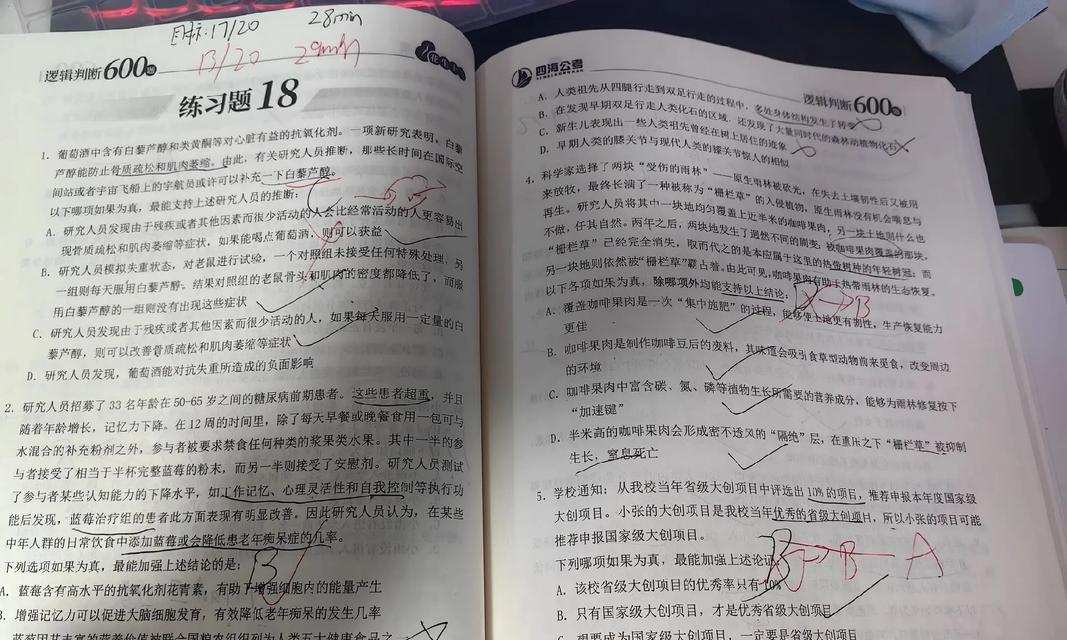 目标:17/20 28min
13/20 29min
逻辑判断600题
练习题18
1. 葡萄酒中含有白藜芦醇和类黄酮等对心脏有益的抗氧化剂。一项新研究表明，白藜
芦醇能防止骨质疏松和肌肉萎缩。由此，有关研究人员推断，那些长时间在国际空
间站或者宇宙飞船上的宇航员或许可以补充一下白藜芦醇。
以下哪项如果为真，最能支持上述研究人员的推断：
A. 研究人员发现由于残疾或者其他因素而很少活动的人会比经常活动的人更容易出
现骨质疏松和肌肉萎缩等症状，如果能喝点葡萄酒，则可以获益
B. 研究人员模拟失重状态，对老鼠进行试验，一个对照组未接受任何特殊处理，另
一组则每天服用白藜芦醇。结果对照组的老鼠骨头和肌肉的密度都降低了，而服
用白藜芦醇的一组则没有出现这些症状
C. 研究人员发现由于残疾或者其他因素而很少活动的人，如果每天服用一定量的白
藜芦醇，则可以改善骨质疏松和肌肉萎缩等症状
D. 研究人员发现，葡萄酒能对抗失重所造成的负面影响
2. 研究人员招募了 33 名年龄在 50-65 岁之间的糖尿病前期患者。这些患者超重，并且
随着年龄增长，记忆力下降。在 12 周的时间里，除了每天早餐或晚餐食用一包可与
水混合的补充粉剂之外，参与者被要求禁食任何种类的浆果类水果。其中一半的参
与者接受了相当于半杯完整蓝莓的粉末，而另一半则接受了安慰剂。研究人员测试
了参与者某些认知能力的下降水平，如工作记忆、心理灵活性和自我控制等执行功
能后发现，蓝莓治疗组的患者此方面表现有明显改善。因此研究人员认为，在某些
中年人群的日常饮食中添加蓝莓或会降低患老年痴呆症的几率。
下列选项如果为真，最能加强上述结论的是：
B
A. 蓝莓含有高水平的抗氧化剂花青素，有助于增强细胞内的能量产生
B. 增强记忆力可以促进大脑细胞发育，有效降低老年痴呆的发生几率
四海公考
逻辑判断600题
A. 人类祖先从四腿行走到双足行走的过程中，多处身体结构发生了转变
B. 在发现早期双足行走人类化石的区域，还发现了大量同时代的森林动植物化石
C. 新生儿表现出一些人类祖先曾经在树上居住的迹象
D. 早期人类的膝关节与现代人类的膝关节惊人的相似
4. 科学家选择了两块“受伤的雨林”——原生雨林被砍光，在失去土壤韧性后又被用
来放牧，最终长满了一种被称为“栅栏草”的入侵植物，原生雨林没有机会喘息与
再生。研究人员将其中一块地均匀覆盖上近半米的咖啡果肉，另一块土地则什么也
不做，任其自然。两年之后，两块地发生了迥然不同的嬗变，被咖啡果肉覆盖的那块，
“栅栏草”已经完全消失，取而代之的是本应属于这里的热带树种的年轻树冠；而
另一块地则依然被“栅栏草”霸占着。由此可见，咖啡果肉有助于热带雨林的生态恢复。
以下各项如果为真，除哪项外均能支持上以结论：
A. 覆盖咖啡果肉是一次“集中施肥”的过程，能够使土地更有韧性，生产恢复能力
更佳
B. 咖啡果肉是制作咖啡豆后的废料，其味道会吸引食草型动物前来觅食，改变周边
的环境
C. 咖啡果肉中富含碳、氮、磷等植物生长所需要的营养成分，能够为雨林修复按下
“加速键”
D. 半米高的咖啡果肉会形成密不透风的“隔绝”层，在重压之下“栅栏草”被抑制
生长，窒息死亡
5. 学校通知：从我校当年省级大创项目中评选出 10% 的项目，推荐申报本年度国家级
大创项目。小张的大创项目是我校当年优秀的省级大创项目，所以小张的项目可能
推荐申报国家级大创项目。
下列哪项如果为真，最能加强上述论证
B A
A. 该校省级大创项目的优秀率只有 10%
B. 只有国家级大创项目，才是优秀省级大创项目
C. 想要成为国家级大创项目，一定要是省级大创项目